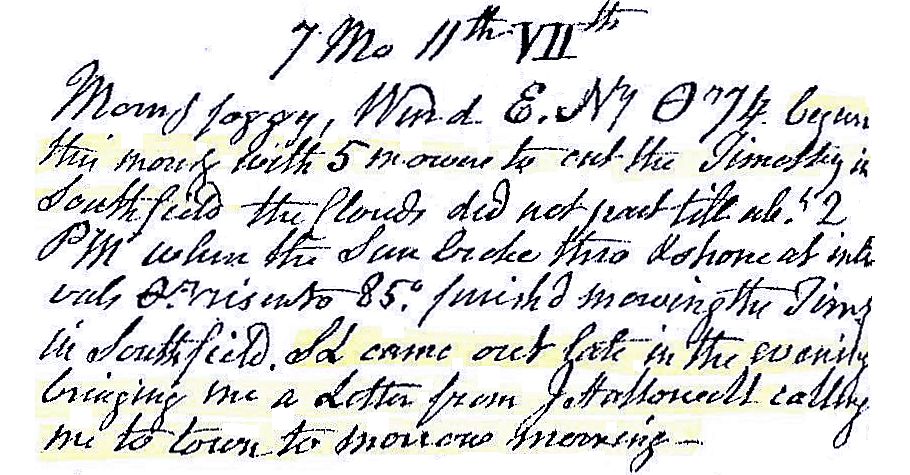 7 Mo 11th VIIth
Morng foggy, Wind E. N Θr 74. begun
this morng with 5 mowers to cut the Timothy in
Southfield the Clouds did not part till abt 2
PM when the Sun broke thro & shone at inter
vals Θr risen to 85° finish'd mowing the Timy
in Southfield. Sd came out late in the evening
bringing me a Letter from J Hallowell calling
me to town to morrow morning —